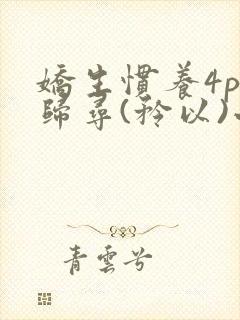 嬌生慣養4p
歸尋(矜以)
青雲兮